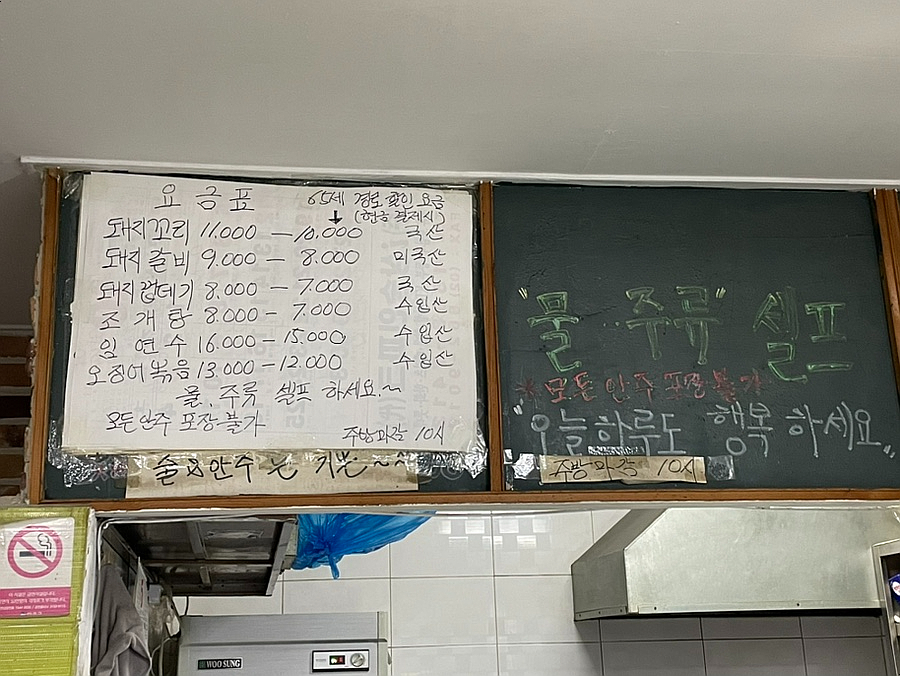 요금표
65세 경로 할인 요금
↓ (현금 결제시)
돼지꼬리 11.000 — 10.000 국산
돼지갈비 9.000 — 8.000 미국산
돼지껍데기 8.000 — 7.000 국산
조개탕 8.000 — 7.000 수입산
임연수 16.000 — 15.000 수입산
오징어볶음 13.000 — 12.000 수입산
물, 주류 셀프 하세요.~
모든안주 포장불가
주방마감 10시
술&안주는 기본~^
"물.주류" 셀프
※모든안주 포장불가
"오늘하루도 행복하세요"
주방마감 10시
WOO SUNG